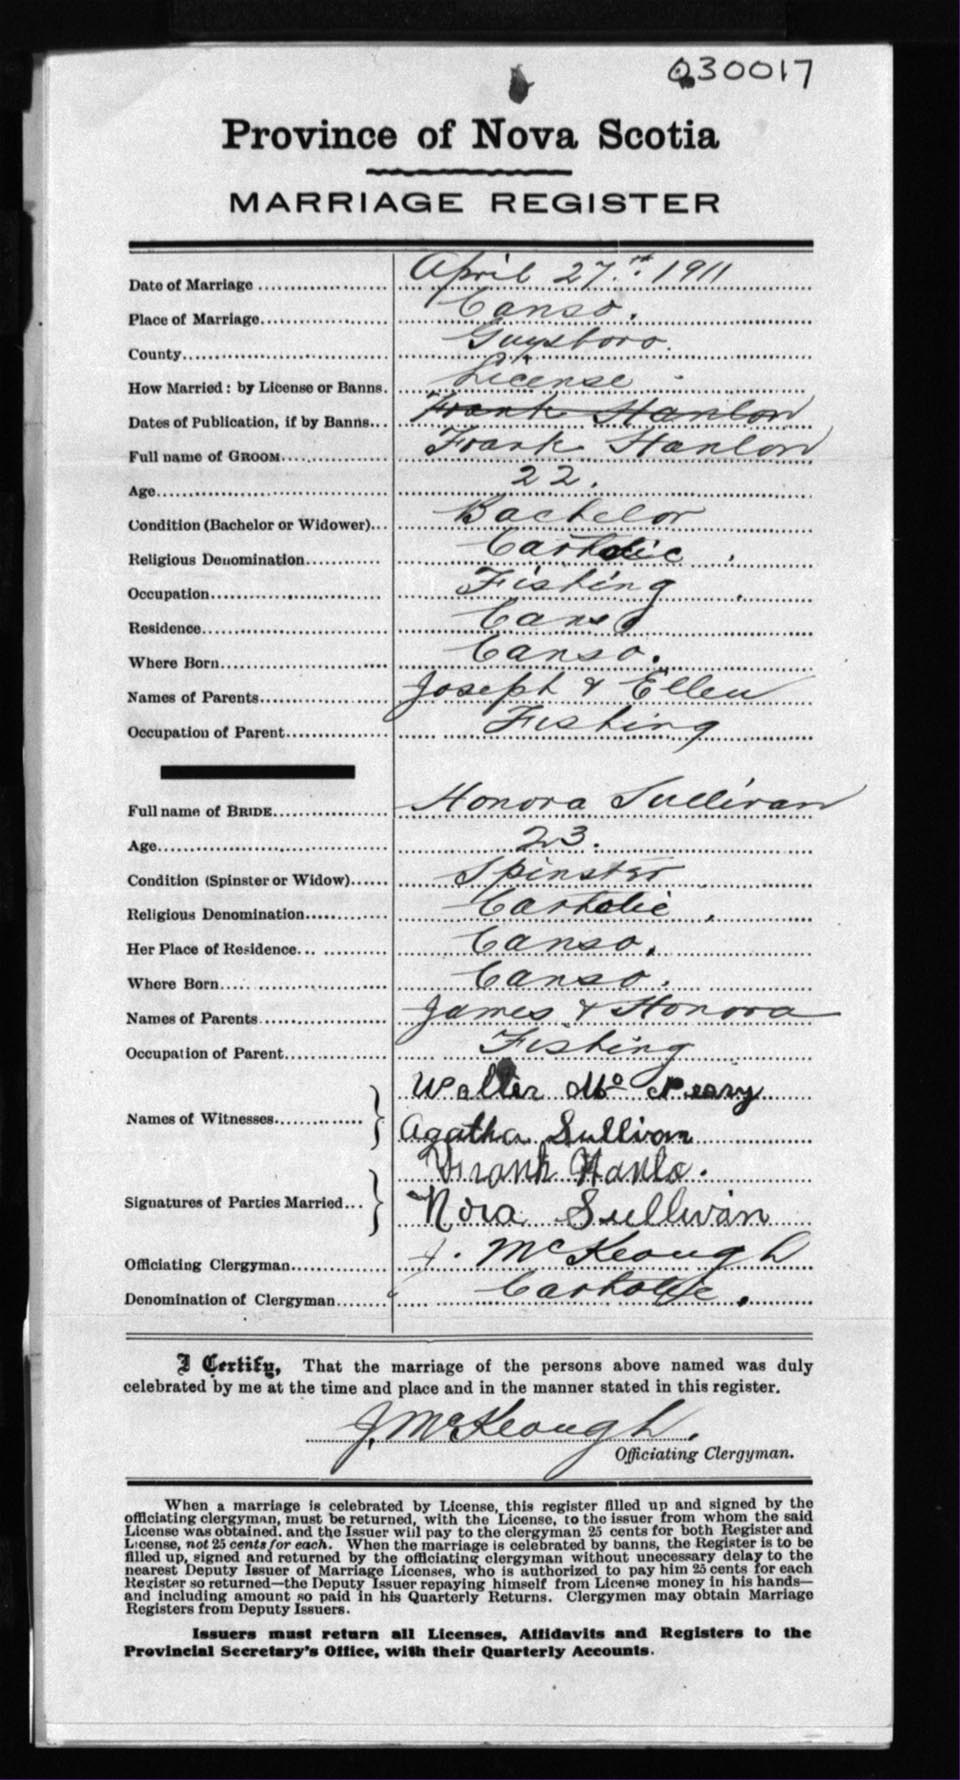 030017
Province of Nova Scotia
MARRIAGE REGISTER
Date of Marriage April 27th. 1911
Place of Marriage Canso.
County Guysboro.
How Married: by License or Banns. License
Dates of Publication, if by Banns... Frank Hanlon
Full name of GROOM Frank Hanlon
Age 22.
Condition (Bachelor or Widower)... Bachelor
Religious Denomination Catholic
Occupation Fishing
Residence Canso
Where Born Canso.
Names of Parents Joseph & Ellen
Occupation of Parent Fishing
Full name of BRIDE Honora Sullivan
Age 23.
Condition (Spinster or Widow) Spinster
Religious Denomination Catholic
Her Place of Residence Canso.
Where Born Canso.
Names of Parents James & Honora
Occupation of Parent Fishing
Walter Mc
Names of Witnesses
Agatha Sullivan
Frank Hanlo.
Signatures of Parties Married...
Nora Sullivan
Officiating Clergyman J. McKeough
Denomination of Clergyman Catholic.
I Certify, That the marriage of the persons above named was duly
celebrated by me at the time and place and in the manner stated in this register.
J. McKeough.
Officiating Clergyman.
When a marriage is celebrated by License, this register filled up and signed by the
officiating clergyman, must be returned, with the License, to the issuer from whom the said
License was obtained. and the Issuer will pay to the clergyman 25 cents for both Register and
License, not 25 cents for each. When the marriage is celebrated by banns, the Register is to be
filled up, signed and returned by the officiating clergyman without unnecessary delay to the
nearest Deputy Issuer of Marriage Licenses, who is authorized to pay him 25 cents for each
Register so returned—the Deputy Issuer repaying himself from License money in his hands—
and including amount so paid in his Quarterly Returns. Clergymen may obtain Marriage
Registers from Deputy Issuers.
Issuers must return all Licenses, Affidavits and Registers to the
Provincial Secretary's Office, with their Quarterly Accounts.